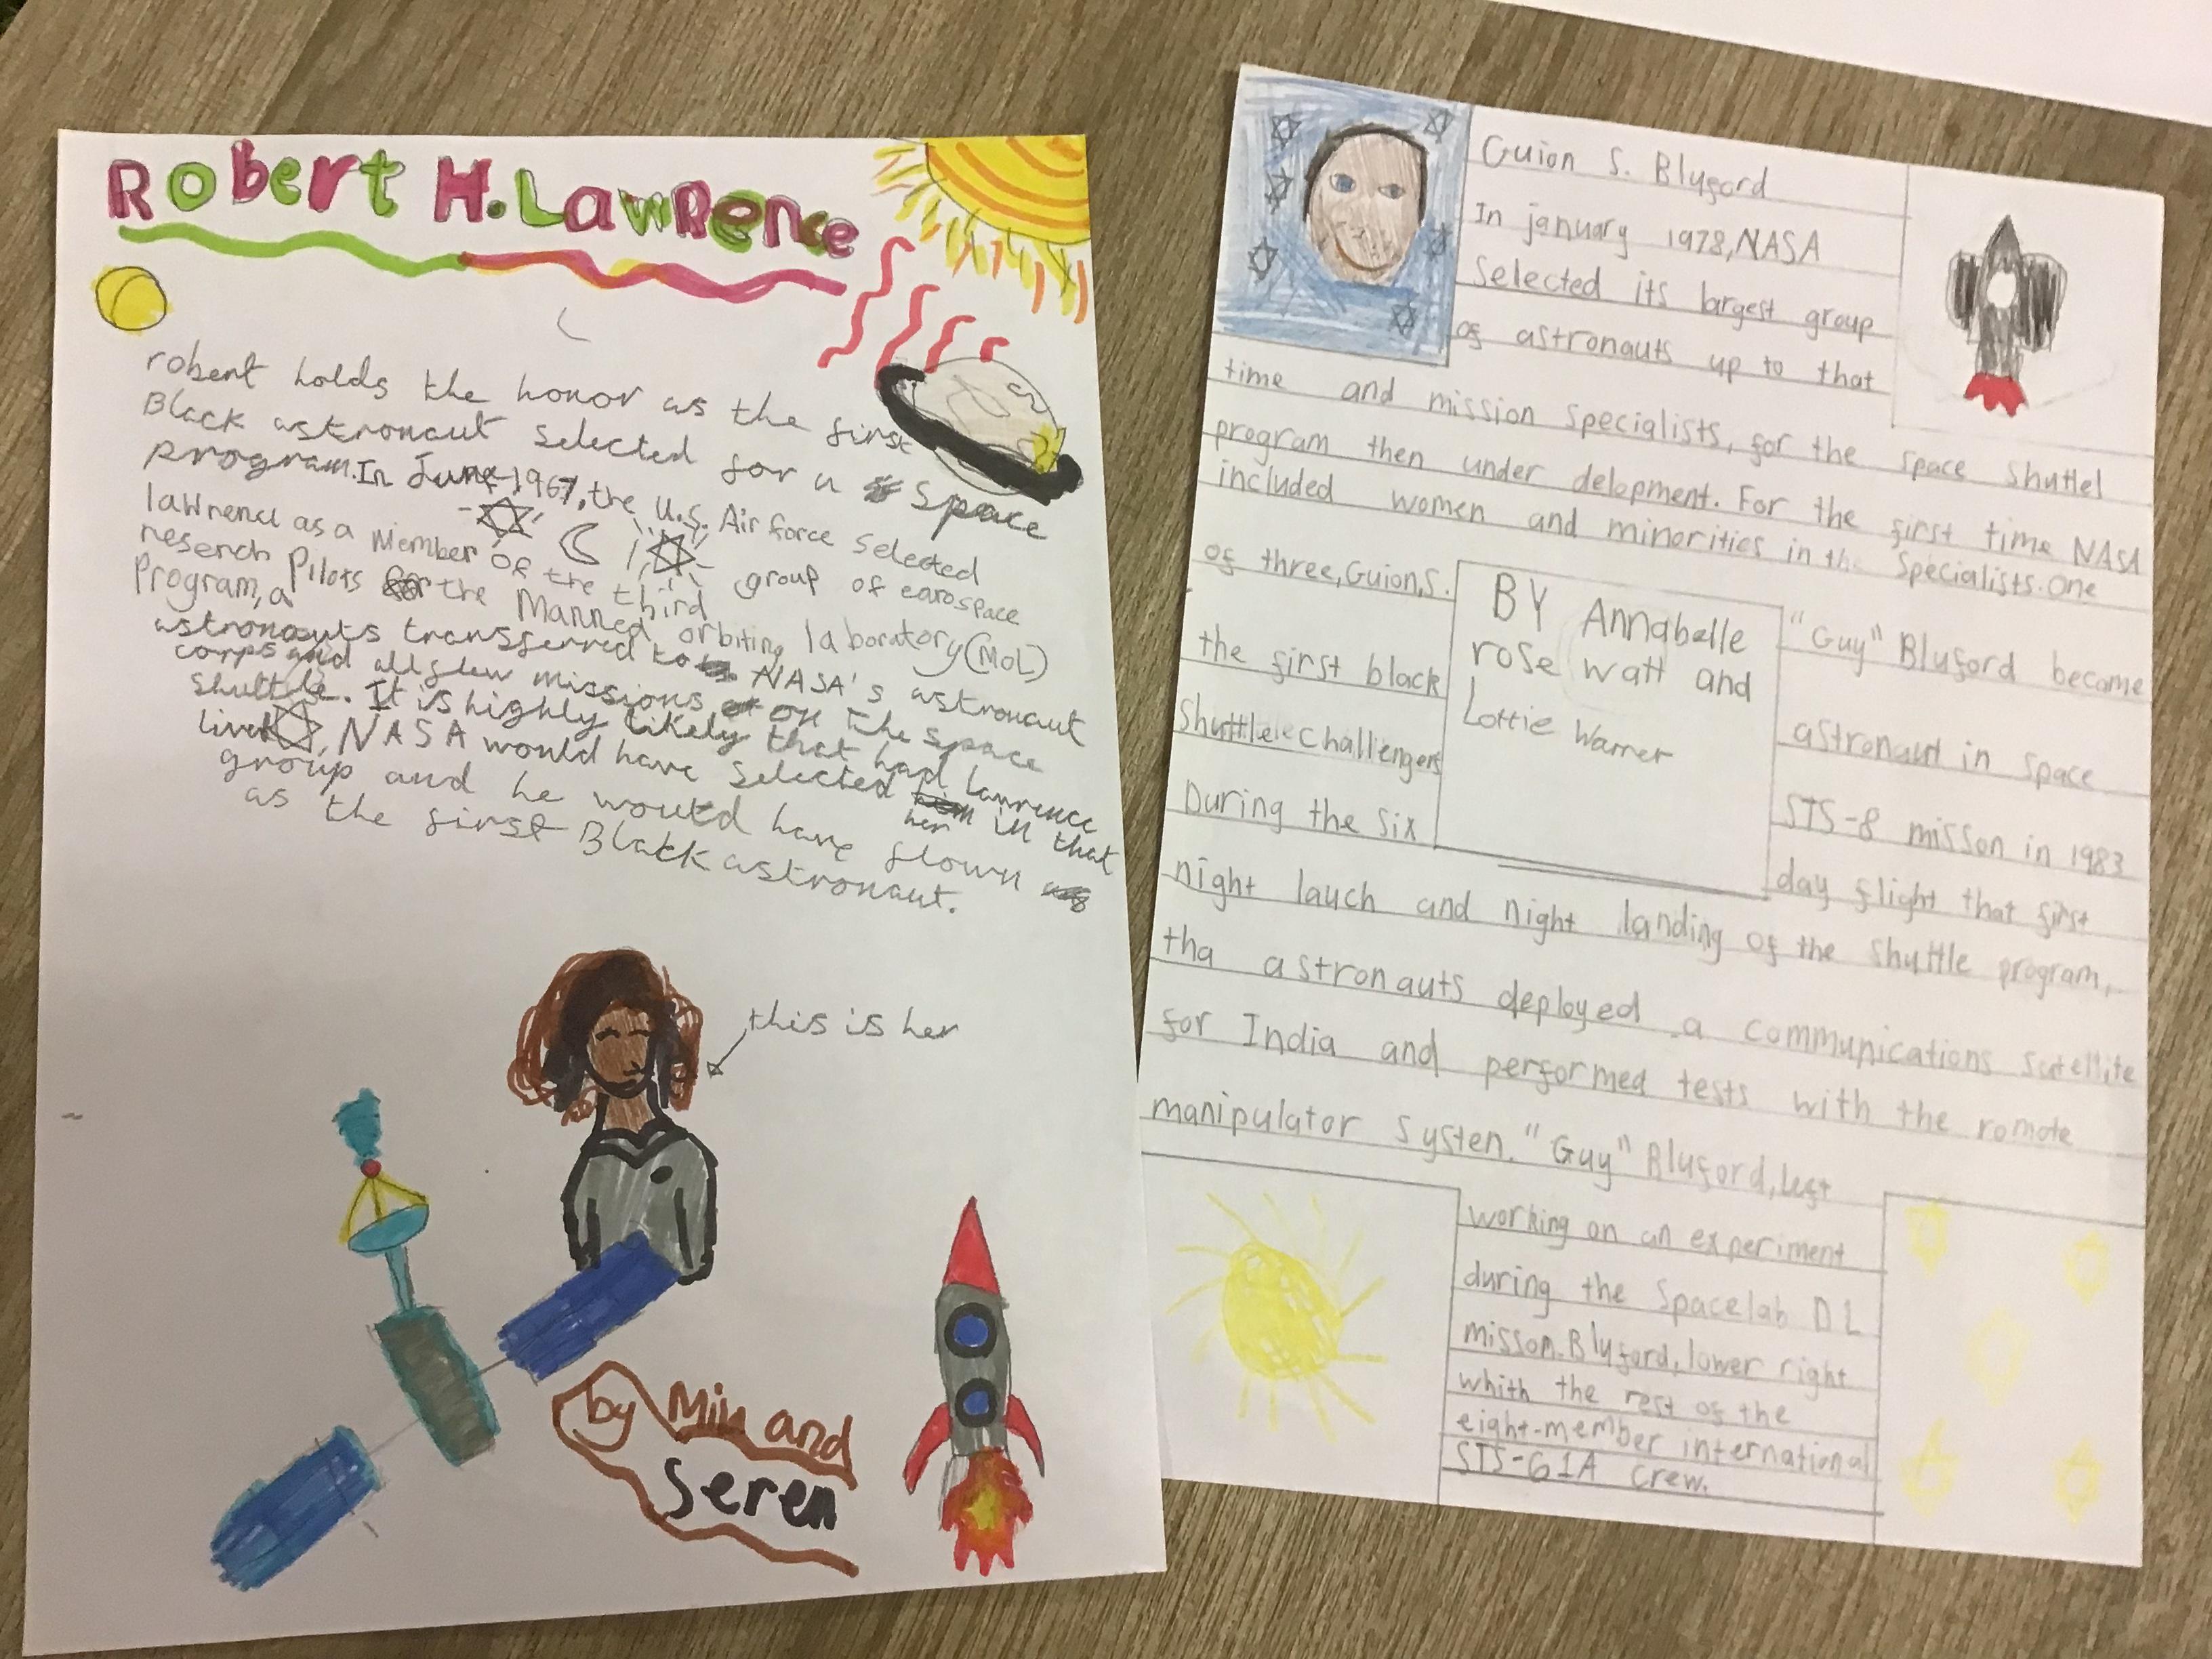 Robert H. Lawrence
robert holds the honor as the first
Black astronaut selected for a space
program. In June 1967, the U.S. Air force selected
lawrence as a Member of the third group of earospace
reserch Pilots for the Manned orbiting laboratory (MOL)
Program, a
astronauts transferred to NASA's astronaut
corps and all flew missions on the space
shuttle. It is highly likely that had lawrence
lived, NASA would have selected her in that
group and he would have flown
as the first Black astronaut.
this is her
by Mili and
Seren
Guion S. Bluford
In january 1978, NASA
Selected its largest group
of astronauts up to that
time and mission specialists, for the space Shuttel
program then under delopment. For the first time NASA
included women and minorities in the Specialists. One
of three, Guion, S. "Guy" Bluford became
the first black astronaut in space
Shuttle Challengers STS-8 misson in 1983
During the six day flight that first
night lauch and night landing of the shuttle program,
tha astronauts deployed a communications satellite
for India and performed tests with the romote
manipulator Systen. "Guy" Bluford, left
working on an experiment
during the Spacelab D1
misson. Bluford, lower right
whith the rest of the
eight-member international
STS-61A crew.
BY Annabelle
rose watt and
Lottie Warner